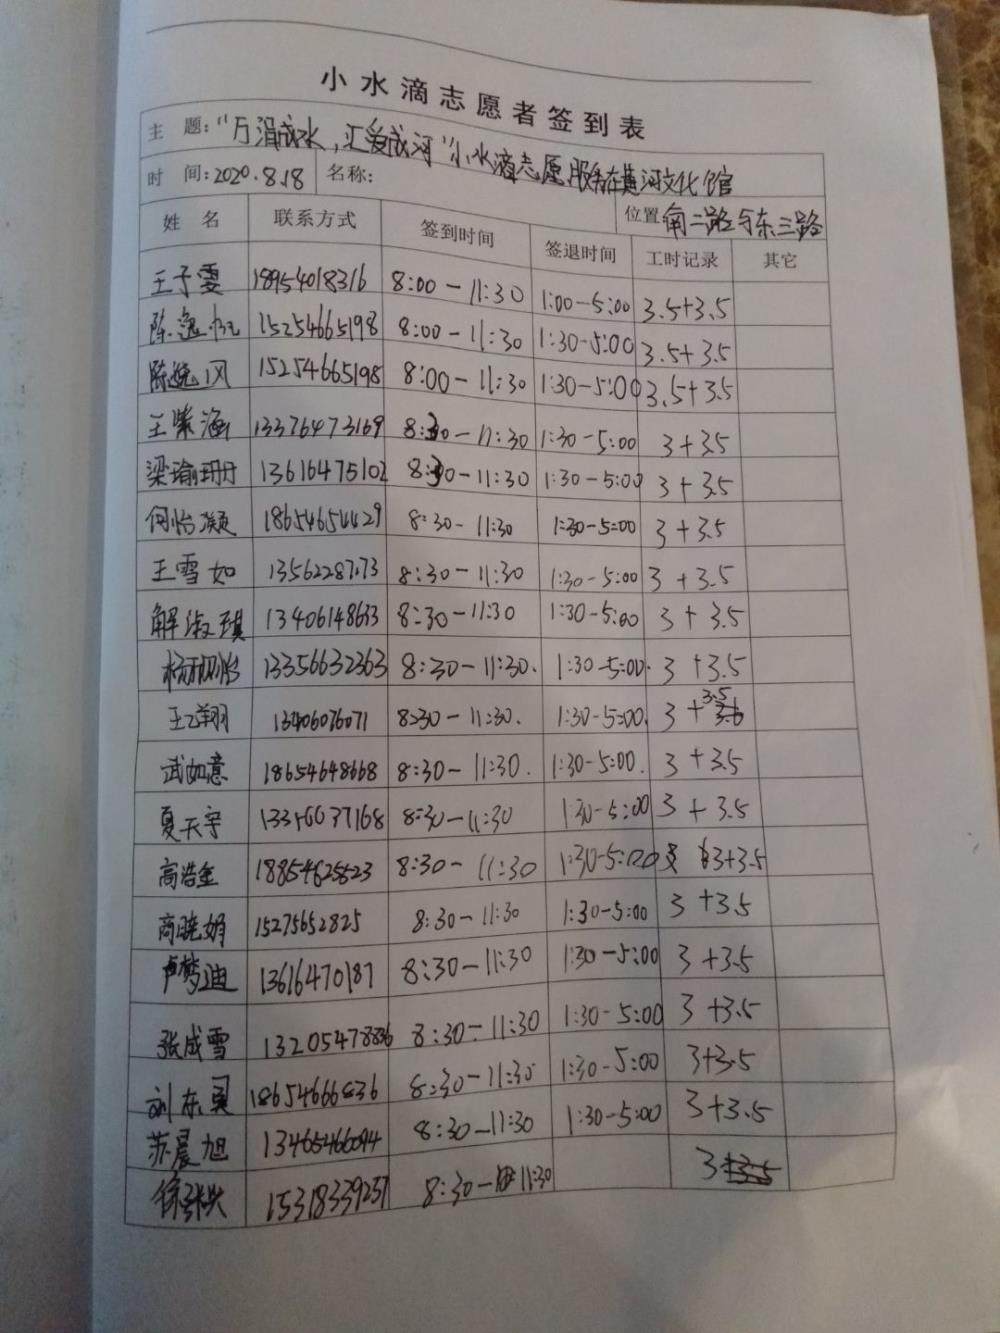 小水滴志愿者签到表
主 题:“万涓成水,汇爱成河”小水滴志愿服务在黄河文化馆
时 间:2020.8.18 名称:
位置 南二路与东三路
姓 名 联系方式 签到时间 签退时间 工时记录 其它
王子雯 18954018316 8:00-11:30 1:00-5:00 3.5+3.5
陈逸 15254665198 8:00-11:30 1:30-5:00 3.5+3.5
陈逸风 15254665198 8:00-11:30 1:30-5:00 3.5+3.5
王紫涵 13376473169 8:30-11:30 1:30-5:00 3+3.5
梁瑜珊 13616475102 8:30-11:30 1:30-5:00 3+3.5
何怡凝 18654654429 8:30-11:30 1:30-5:00 3+3.5
王雪如 8:30-11:30 1:30-5:00 3+3.5
解淑琪 13406148633 8:30-11:30 1:30-5:00 3+3.5
13356632363 8:30-11:30. 1:30-5:00. 3+3.5
王乙翔 13406076071 8:30-11:30. 1:30-5:00. 3+3.5
武如意 18654648668 8:30-11:30. 1:30-5:00. 3+3.5
夏天宇 8:30-11:30 1:30-5:00 3+3.5
高浩 8:30-11:30 1:30-5:00 3+3.5
商晓娟 15275652825 8:30-11:30 1:30-5:00 3+3.5
卢梦迪 13616470187 8:30-11:30 1:30-5:00 3+3.5
张成雪 8:30-11:30 1:30-5:00 3+3.5
刘东 18654666836 8:30-11:30 1:30-5:00 3+3.5
苏晨旭 13465466094 8:30-11:30 1:30-5:00 3+3.5
15318339257 8:30-11:30 3